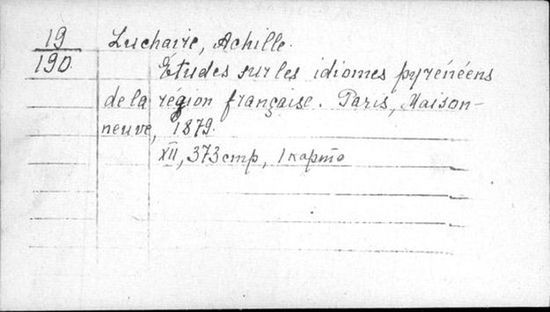 19
190
Luchaire, Achille.
Études sur les idiomes pyrénéens
de la région française. Paris, Maison-
neuve, 1879.
XII, 373 стр, 1 карта